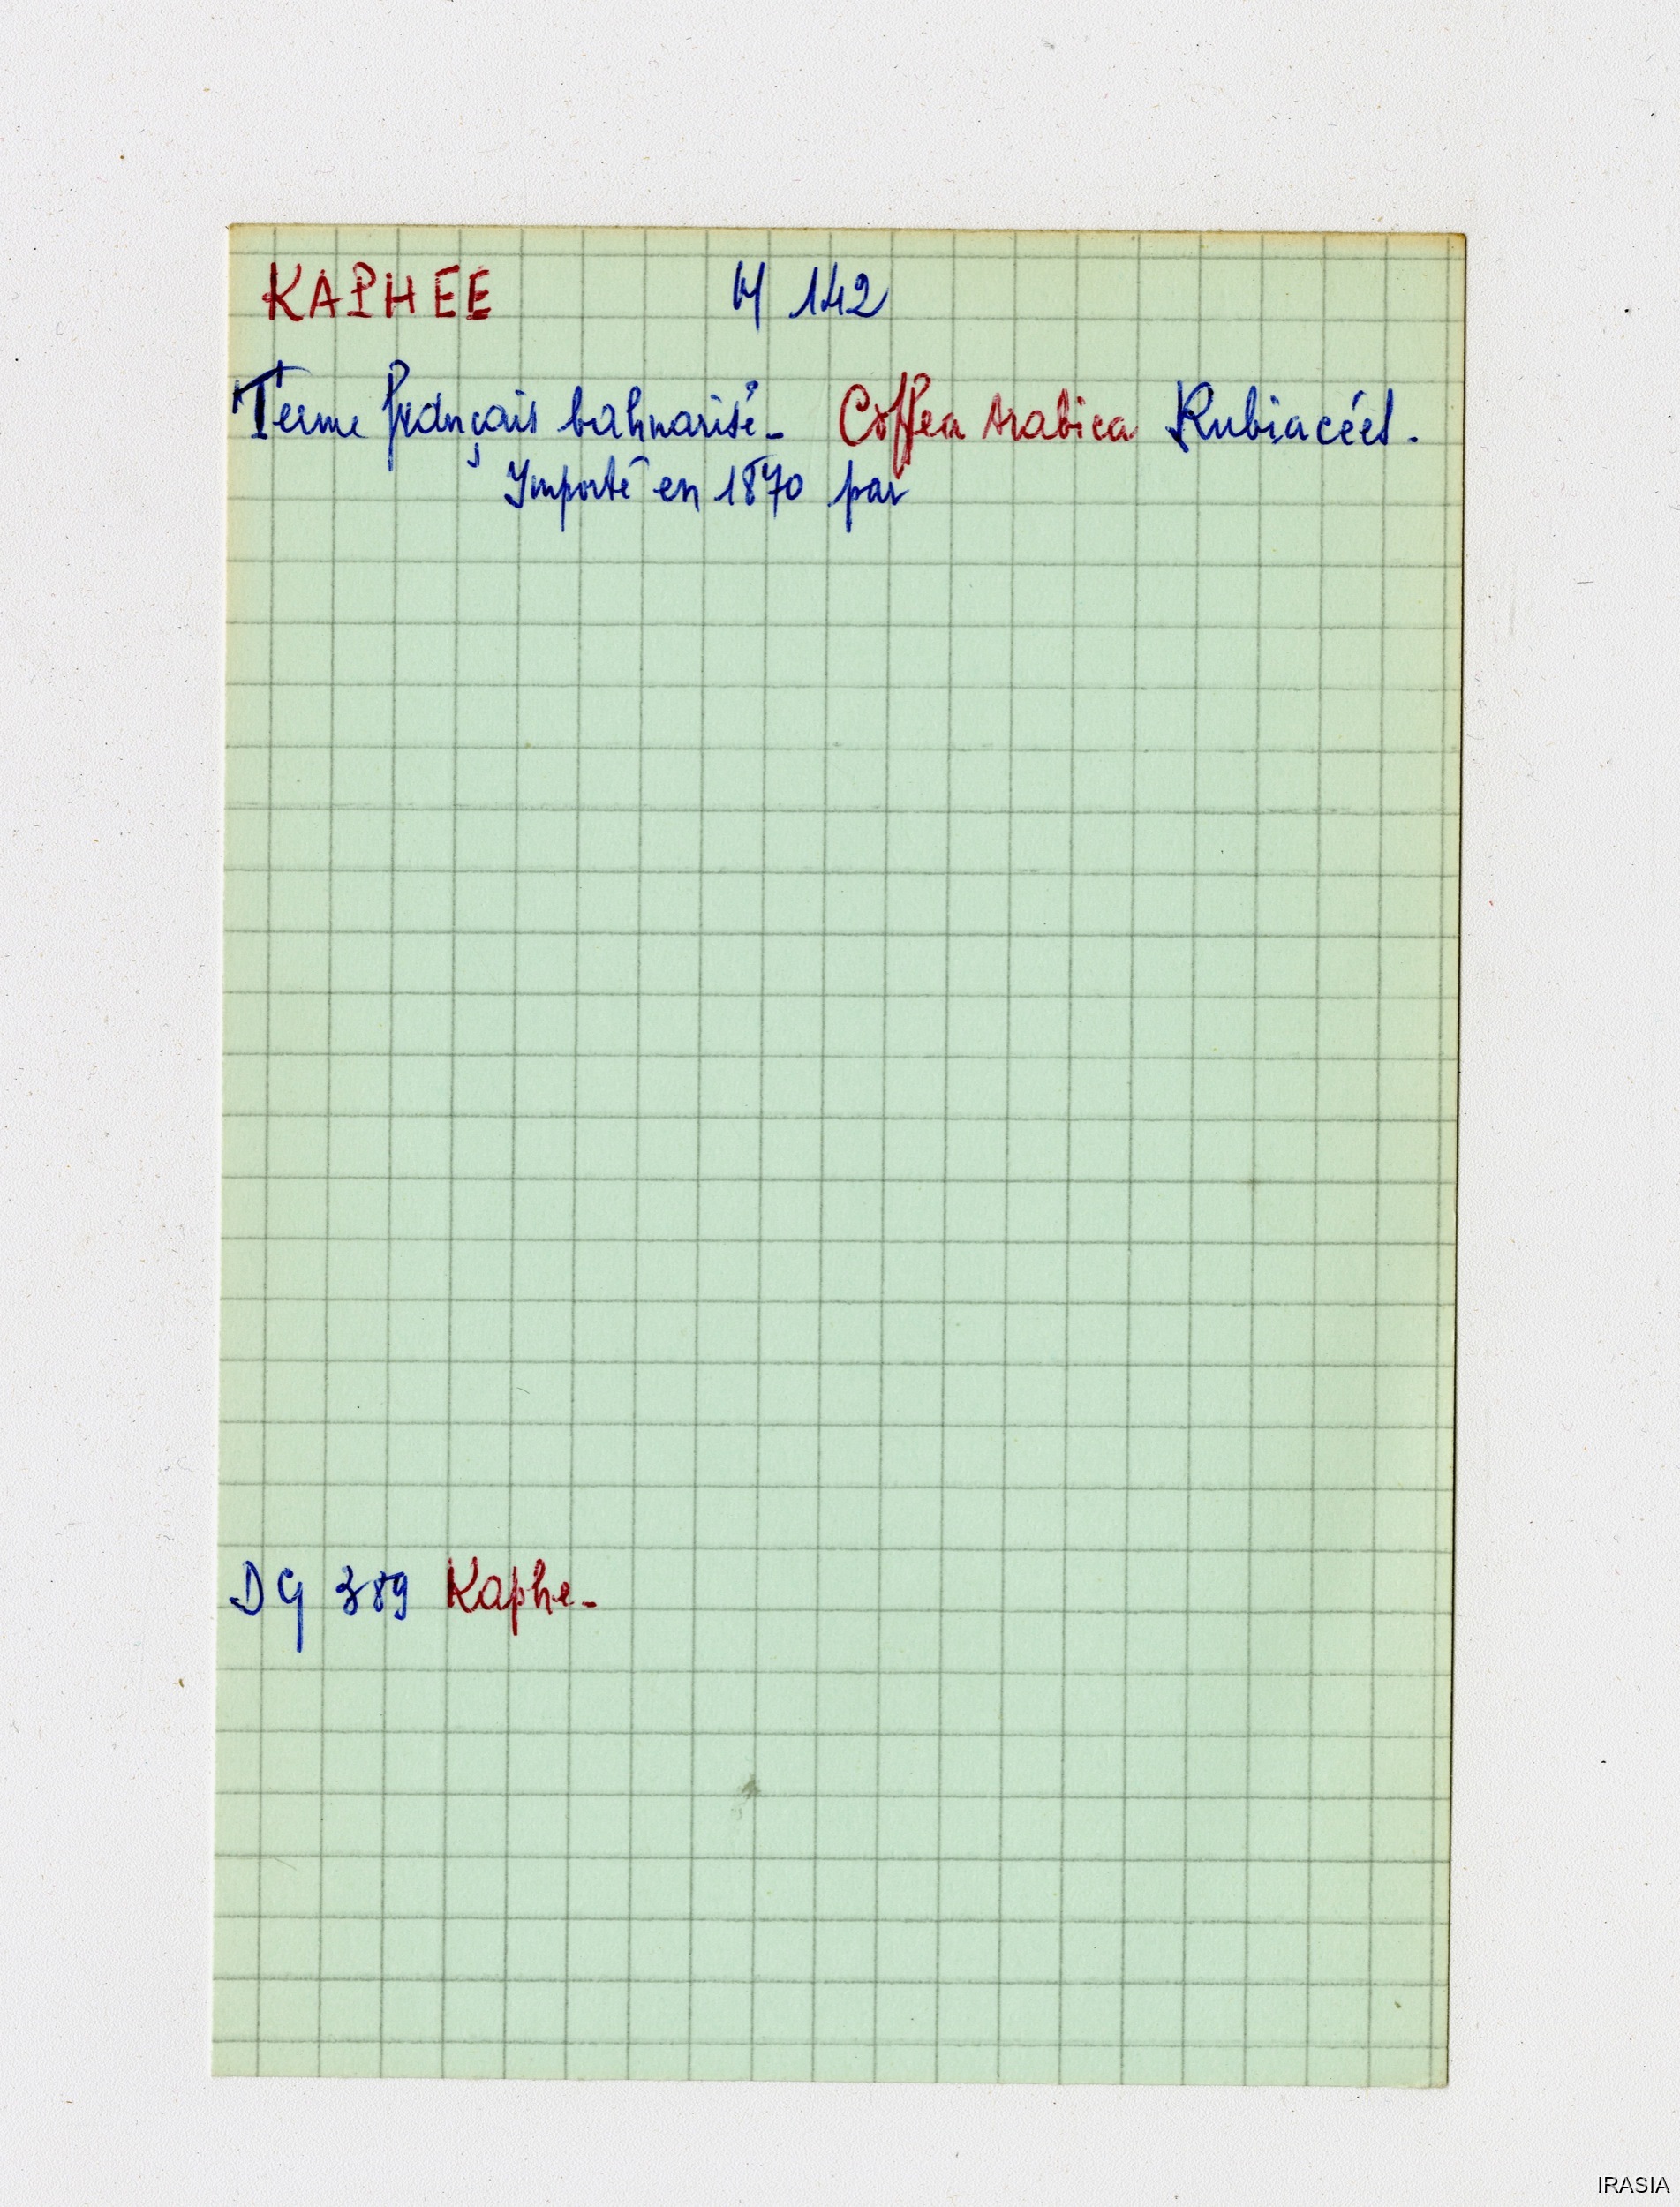 KAPHEE M 142
Terme français bahnarisé- Coffea Arabica Rubiacées.
Importé en 1870 par
DG 389 Kaphe-
IRASIA